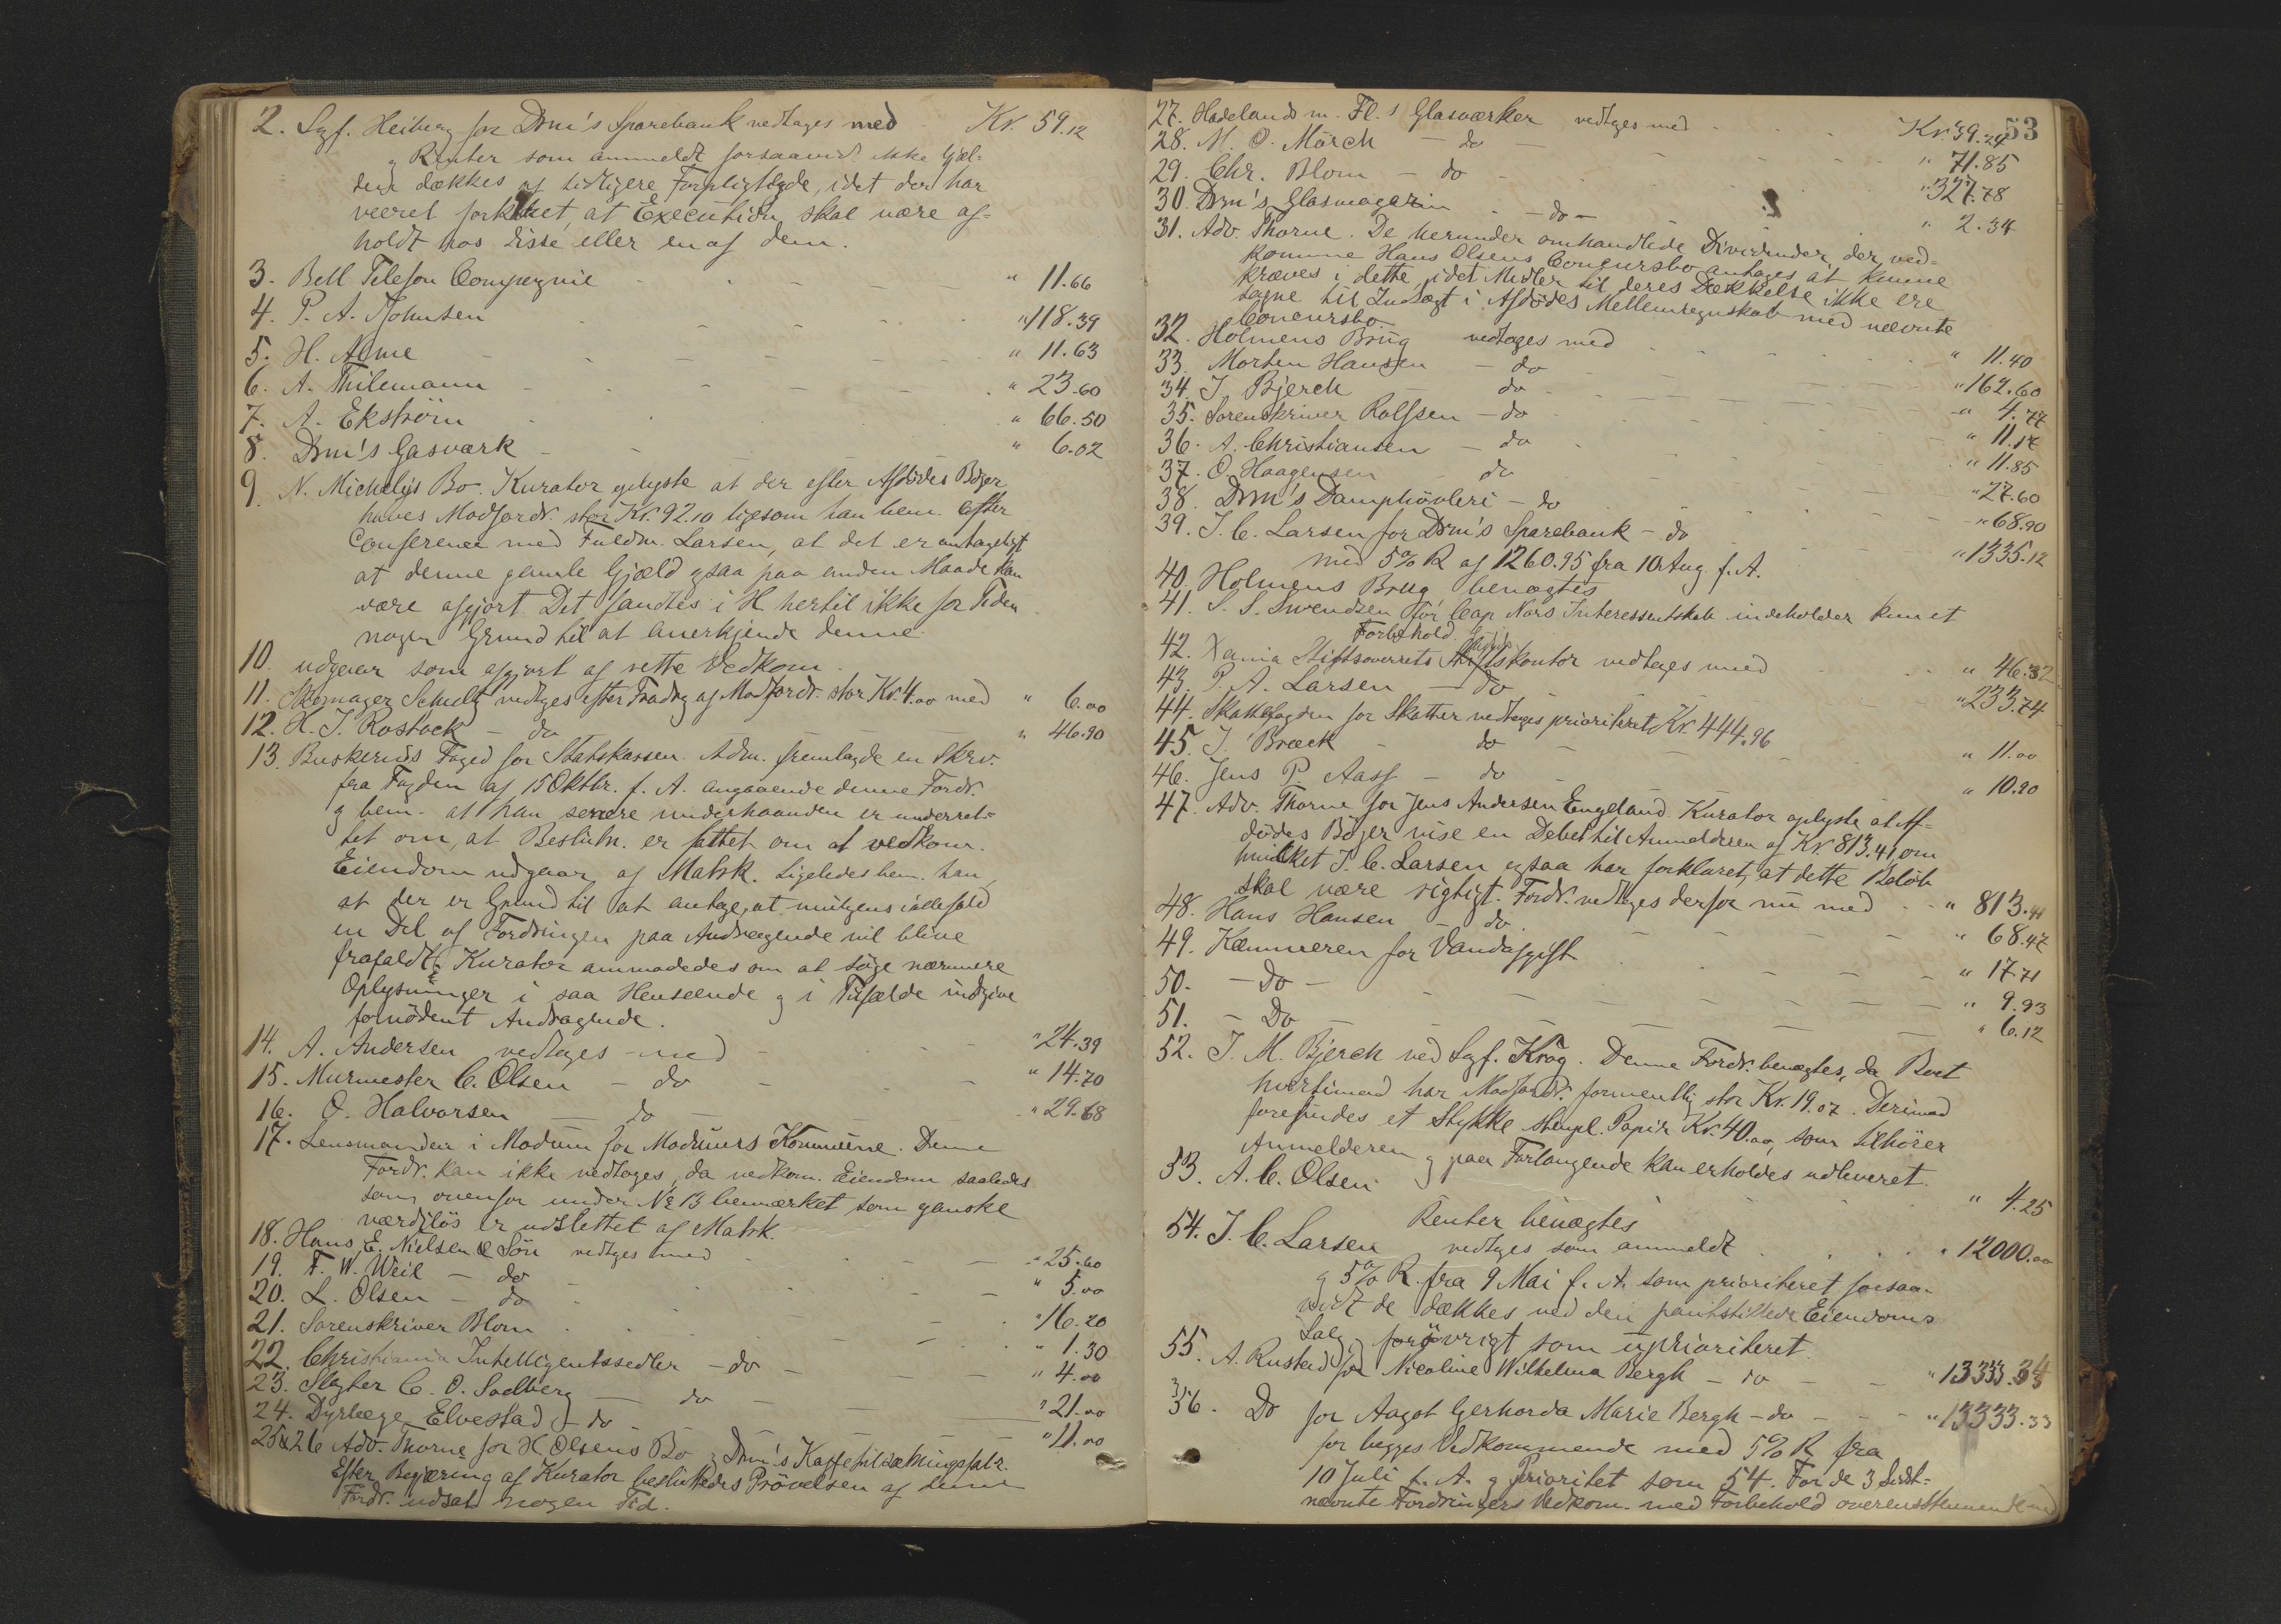 2. Sgf. Heiberg for Drm's Sparebank vedtages med Kr. 59.12
g Renter som anmeldt forsaavidt ikke Gjæl-
den dækkes af tidligere Forpligtede, idet der har
været forklaret, at Execution skal være af-
holdt hos disse eller en af dem.
3. Bell Telefon Compagnie - - - - " 11.66
4. P. A. Johnsen - - - - "118.39
5. H. Asme - - - - " 11.63
6. A. Thilemann - - - - " 23.60
7. A. Ekström - - - - " 66.50
8. Drm's Gasværk - - - - " 6.02
9. N. Michelys Bo. Kurator oplyste at der efter Afdödes Böger
haves Modfordr. stor Kr. 92.10 ligesom han bem. efter
Conference med Fuldm. Larsen, at det er antageligt
at denne gamle Gjæld ogsaa paa anden Maade kan
være afgjort. Det fandtes i H. hertil ikke for Tiden
nogen Grund til at anerkjende denne.
10. udgaar som afgjort af rette Vedkom.
11. Skomager Schultz vedtages efter Fradrg af Modfordr. stor Kr. 4.00 med " 6.00
12. H. J. Rostock - do " 46.90
13. Buskeruds Foged for Statskassen. Adm. fremlagde en Skrv.
fra Fogden af 15 Oktbr. f. A. angaaende denne Fordr.
g bem. at han senere underhaanden er underret-
tet om, at Beslutn. er fattet om at vedkom.
Eiendom udgaar af Matrk. Ligeledes bem. han,
at der er Grund til at antage, at muligens iallefald
en Del af Fordringen paa Andragende vil blive
frafaldt. Kurator anmodedes om at söge nærmere
Oplysninger i saa Henseende g i Tilfælde indgive
fornödent Andragende.
14. A. Andersen vedtages med - - - "24.39
15. Murmester C. Olsen - do - - - " 14.70
16. O. Halvorsen - do - " 29.68
17. Lensmanden i Modum for Modums Kommune. Denne
Fordr. kan ikke vedtages, da vedkom. Eiendom saaledes
som ovenfor under No 13 bemærket som ganske
værdilös er udslettet af Matrk.
18. Hans E. Nielsen & Sön vedtges med - - - " 25.60
19. F. W. Weil - do - - - " 5.00
20. L. Olsen - do - - - "16.20
21. Sorenskriver Blom - - - " 1.30
22. Christiania Intelligentssedler - do - - - " 4.00
23. Slagter C. O. Solberg - do - " 21.00
24. Dyrlæge Elvestad - do - " 11.00
25&26 Adv. Thorne for H. Olsens Bo g Drm's Kaffetilsætningsfabr.
Efter Begjæring af Kurator besluttedes Prövelsen af denne
Fordr. udsat nogen Tid.
53
27. Hadelands m. Fl.s Glasværker vedtges med - - - Kr. 39.24
28. M. O. Mörch - do - - - " 71.85
29. Chr. Blom - do - - - "327.78
30. Drm's Glasmagazin - do - " 2.34
31. Adv. Thorne. De herunder omhandlede Dividender, der ved-
komme Hans Olsens Concursbo antages at kunne
kræves i dette, idet Midler til deres Dækkelse ikke ere
tagne til Indtægt i Afdödes Mellemregnskab med nævnte
Concursbo.
32. Holmens Brug vedtages med - - - " 11.40
33. Morten Hansen - do - - - "162.60
34. J. Bjerch - do - - - " 4.77
35. Sorenskriver Rolfsen - do - - - " 11.17
36. A. Christiansen - do - - - " 11.85
37. O. Haagensen - do - - - "27.60
38. Drm's Damphövleri - do - - - "68.90
39. J. C. Larsen for Drm's Sparebank - do - - - "1335.12
med 5% R af 1260.95 fra 10 Aug. f. A.
40. Holmens Brug benægtes
41. S. S. Svendsen for Cap Nors Interessentskab indeholder kun et
Forbehold.
42. Xania Stiftsoverrets Skifts kontor vedtages med - - " 46.32
43. P. A. Larsen - do - "233.74
44. Skattefogden for Skatter vedtages prioriteret Kr. 444.96
45. J. Bræck - do - - - " 11.00
46. Jens P. Aass - do - " 10.20
47. Adv. Thorne for Jens Andersen Engeland. Kurator oplyste at Af-
dödes Böger vise en Debet til Anmelderen af Kr. 813.41, om
hvilket J. C. Larsen ogsaa har forklaret, at dette Belöb
skal være rigtigt. Fordr. vedtages derfor nu med - " 813.41
48. Hans Hansen - do. - - - " 68.47
49. Kæmneren for Vandafgift - - - " 17.71
50. - Do - - - - " 9.93
51. - Do - - - - " 6.12
52. J. M. Bjerch ved Sgf. Krag. Denne Fordr. benægtes, da Boet
hvorimod har Modfordr. formentlig stor Kr. 19.07. Derimod
forefindes et Stykke stempl. Papir Kr. 40.00, som tilhörer
Anmelderen g paa Forlangende kan erholdes udleveret.
53. A. C. Olsen - " 4.25
Renter benægtes
54. J. C. Larsen vedtges som anmeldt - - - " 12000.00
g 5% R. fra 9 Mai f. A. som prioriteret forsaa-
vidt de dækkes ved den pantstillede Eiendoms
Salg, forövrigt som uprioriteret.
55. A. Rustad for Nicoline Wilhelma Bergh - do - - "13333.34
56. Do for Aagot Gerharda Marie Bergh - do - - "13333.33
for begges Vedkommende med 5% R fra
10 Juli f. A. g Prioritet som 54. For de 3 sidst-
nævnte Fordringers Vedkom. med Forbehold overensstemmende med